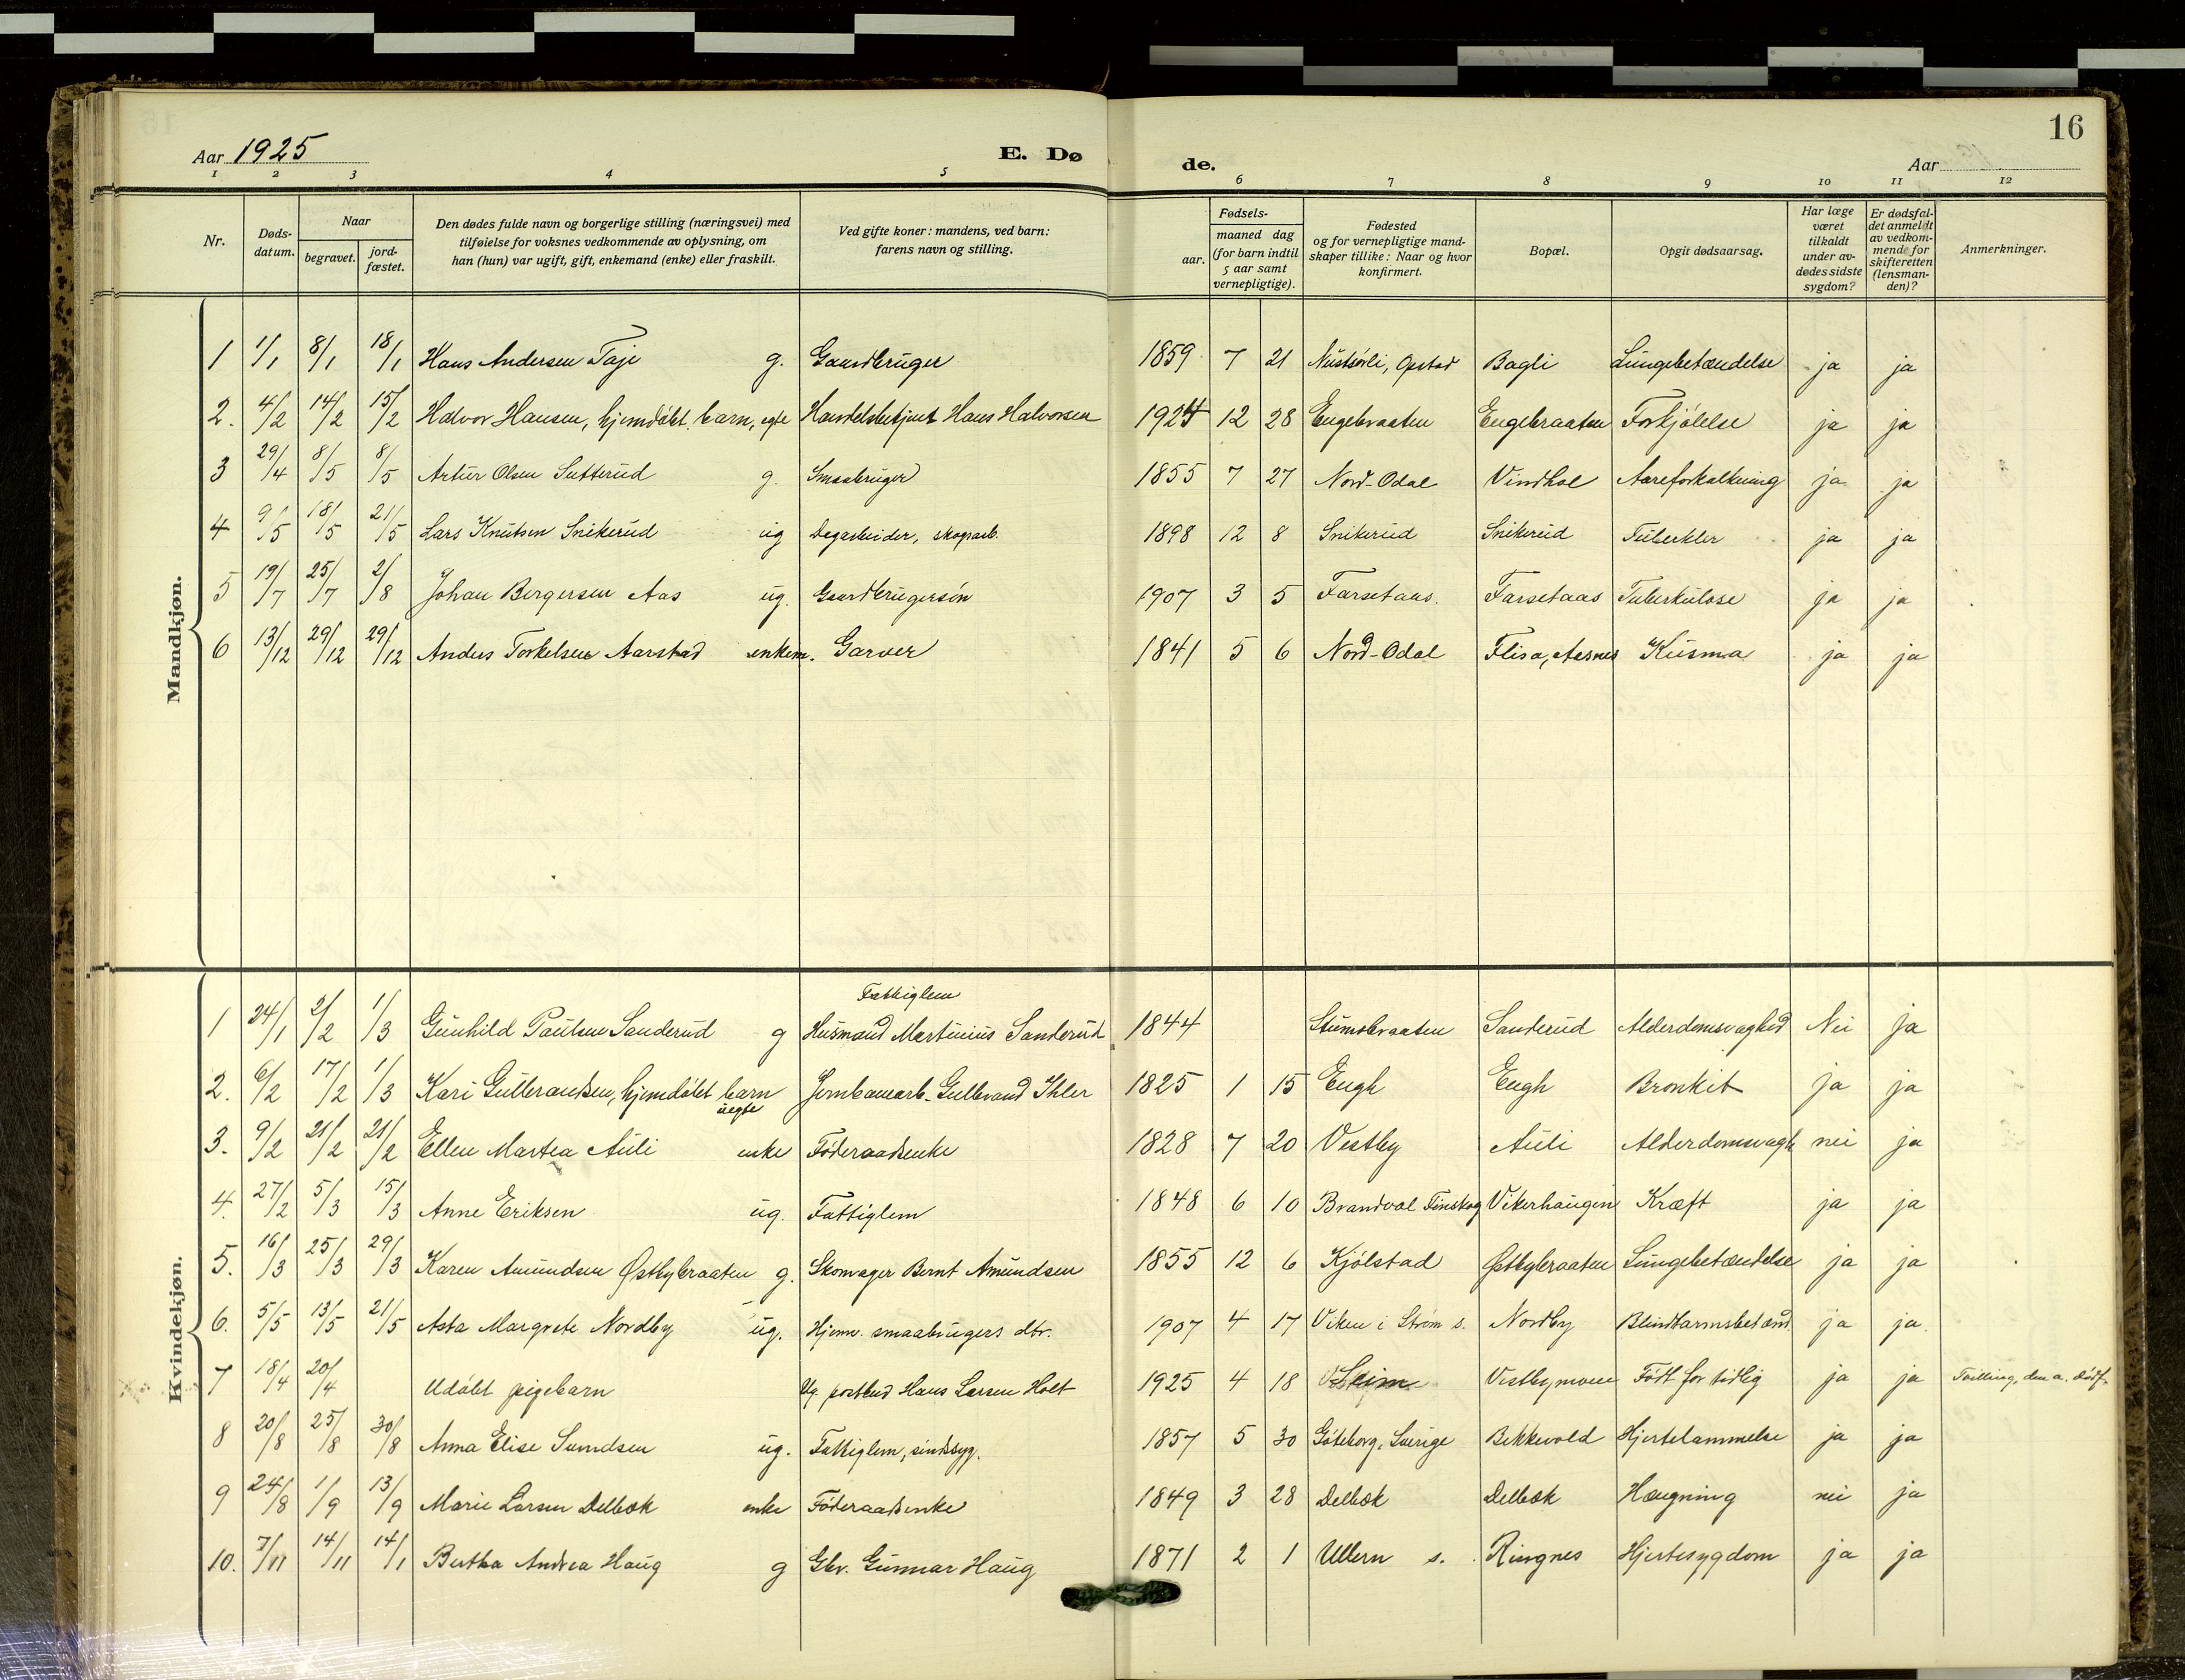 16
Aar 1925 E. Dø de. Aar
1 2 3 4 5 6 7 8 9 10 11 12
Nr. Døds-datum. Naar begravet. jord-fæstet. Den dødes fulde navn og borgerlige stilling (næringsvei) med tilføielse for voksnes vedkommende av oplysning, om han (hun) var ugift, gift, enkemand (enke) eller fraskilt. Ved gifte koner: mandens, ved barn: farens navn og stilling. Fødsels- aar. maaned dag (for barn indtil 5 aar samt vernepligtige). Fødested og for vernepligtige mand-skaper tillike: Naar og hvor konfirmert. Bopæl. Opgit dødsaarsag. Har læge været tilkaldt under av-dødes sidste sygdom? Er dødsfal-det anmeldt av vedkom-mende for skifteretten (lensman-den)? Anmerkninger.
Mandkjøn.
1 1/1 8/1 18/1 Hans Andersen Taje g. Gaardbruger 1859 7 21 Opstad Bagli Lungebetændelse ja ja
2. 4/2 14/2 15/2 Halvor Hansen, hjemdøbt barn, egte Handelsbetjent Hans Halvorsen 1924 12 28 Engebraaten Engebraaten Forkjølelse ja ja
3 29/4 8/5 8/5 Artur Olsen Sutterud g. Smaabruger 1855 7 27 Nord-Odal Vindhol Aareforkalkning ja ja
4 9/5 18/5 21/5 Lars Knutsen Snikerud ug Dagarbeider, skogsarb. 1898 12 8 Snikerud Snikerud Tuberkler ja ja
5 19/7 25/7 2/8 Johan Bergersen Aas ug. Gaardbrugersøn 1907 3 5 Farsetaas. Farsetaas Tuberkulose ja ja
6 13/12 29/12 29/12 Anders Torkelsen Aarstad enkem. Garver 1841 5 6 Nord-Odal Flisa, Aasnes Kusma ja ja
Kvindekjøn.
Fattiglem
1 24/1 2/2 1/3 Gunhild Paulsen Sanderud g Husmand Martinius Sanderud 1844 Stumsbraaten Sanderud Alderdomsvaghed Nei ja
2. 6/2 17/2 1/3 Kari Gulbrandsen, hjemdøbt barn uegte Jernbanearb. Gulbrand Ihler 1825 1 15 Eugh Eugh Bronkit ja ja
3. 9/2 21/2 21/2 Ellen Martea Auli enke Føderaadsenke 1828 7 20 Vestby Auli Alderdomsvagh nei ja
4. 27/2 5/3 15/3 Anne Eriksen ug. Fattiglem 1848 6 10 Brandval Finskog Vikerhaugen Kræft ja ja
5. 16/3 25/3 29/3 Karen Amundsen Østbybraaten g. Skomager Bernt Amundsen 1855 12 6 Kjølstad Østbybraaten Lungebetændelse ja ja
6. 5/5 13/5 21/5 Asta Margrete Nordby ug. Hjemv. smaabrugers dtr. 1907 4 17 Viken i Strøm s. Nordby Blindtarmsbetænd. ja ja.
7 18/4 20/4 Udøbt pigebarn Ug. postbud Hans Larsen Holt 1925 4 18 Seim Vestbymoen Født for tidlig ja ja Tvilling, den a. dødf.
8 20/8 25/8 30/8 Anna Elise Svendsen ug. Fattiglem, sindssyg. 1857 5 30 Gøteborg, Sverige Bekkevold Hjertelammelse ja ja
9 24/8 1/9 13/9 Marie Larsen Delbæk enke Føderaadsenke 1849 3 28 Delbæk Delbæk Hængning nei ja
10. 7/11 14/11 14/1 Bertha Andrea Haug g Gbr. Gunnar Haug 1871 2 1 Ullern s. Ringnes Hjertesygdom ja ja